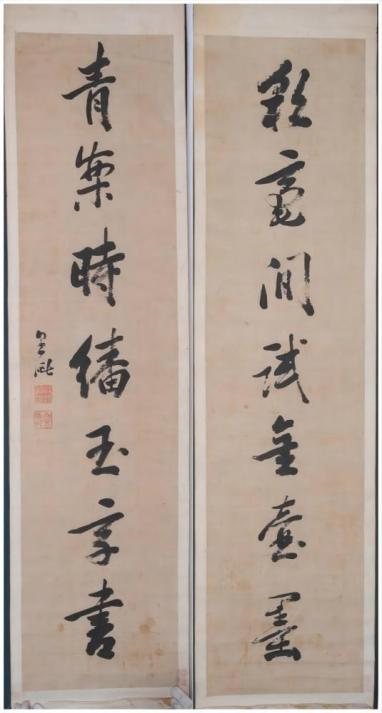 彩毫閒試金壺墨
青案時繙玉字書